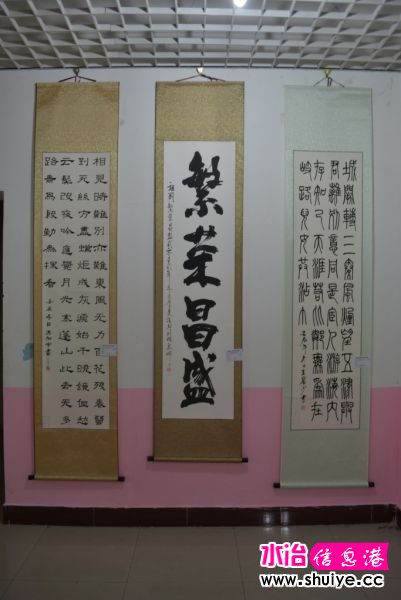 相見時難別亦難東風无力百花殘春蠶
到死絲方盡蠟炬成灰淚始干曉鏡但愁
云鬢改夜吟應覺月光寒蓬山此去无多
路青鳥殷勤為探看
繁荣昌盛
城闕輔三秦風煙望五津與
君離別意同是宦游人海内
存知己天涯若比鄰無為在
岐路兒女共沾巾
水冶信息港
www.shuiye.cc